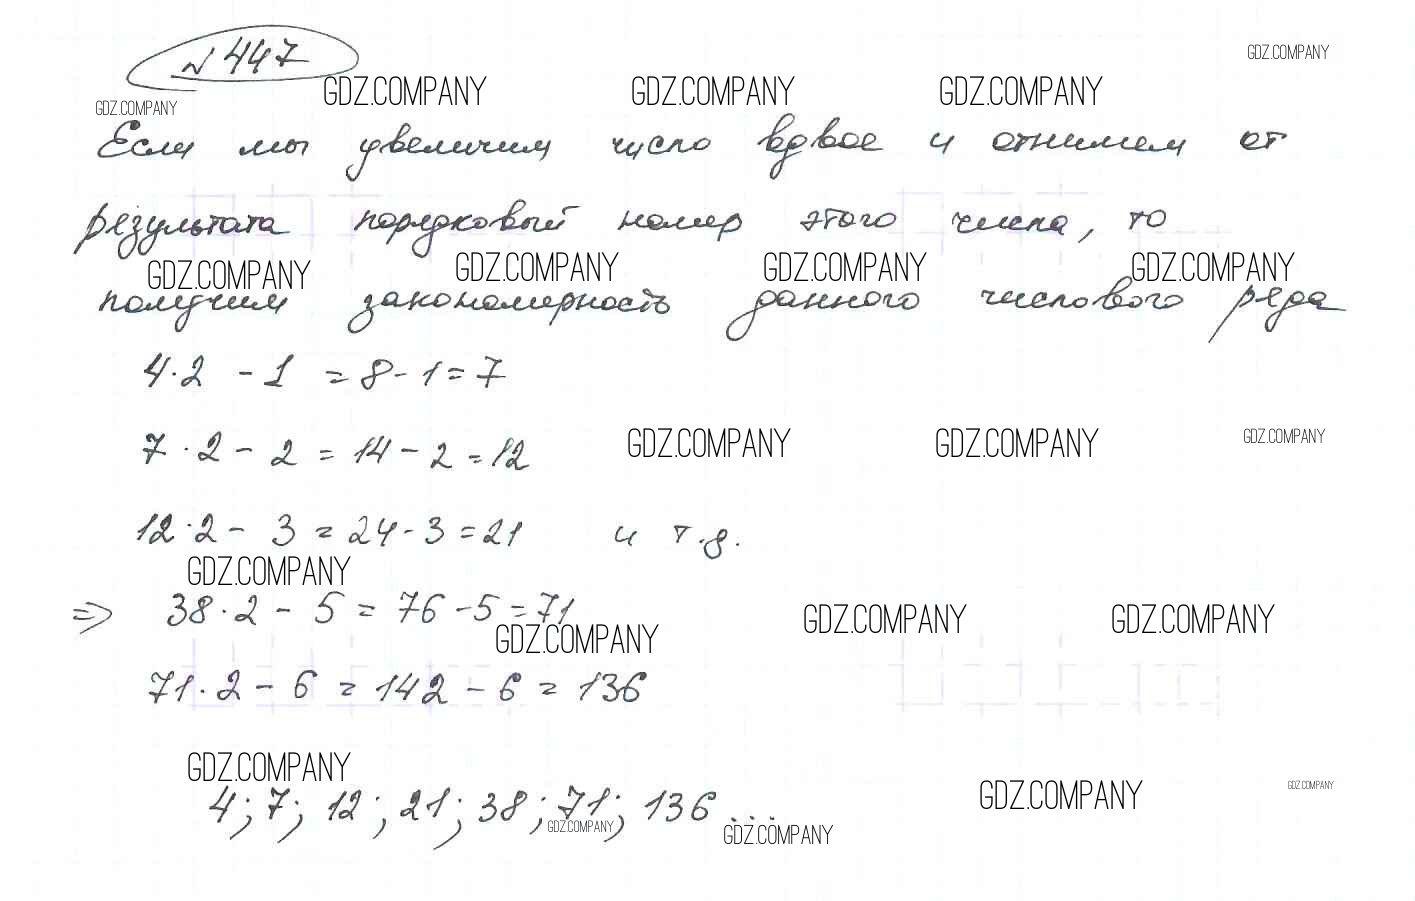 № 447
GDZ.COMPANY
GDZ.COMPANY GDZ.COMPANY GDZ.COMPANY GDZ.COMPANY
Если мы увеличим число вдвое и отнимем от
результата порядковый номер этого числа, то
GDZ.COMPANY GDZ.COMPANY GDZ.COMPANY GDZ.COMPANY
получим закономерность данного числового ряда
4·2 - 1 = 8 - 1 = 7
7·2 - 2 = 14 - 2 = 12
GDZ.COMPANY GDZ.COMPANY GDZ.COMPANY
12·2 - 3 = 24 - 3 = 21 и т.д.
GDZ.COMPANY
=> 38·2 - 5 = 76 - 5 = 71
GDZ.COMPANY GDZ.COMPANY GDZ.COMPANY
71·2 - 6 = 142 - 6 = 136
GDZ.COMPANY
4; 7; 12; 21; 38; 71; 136 ...
GDZ.COMPANY GDZ.COMPANY
GDZ.COMPANY GDZ.COMPANY